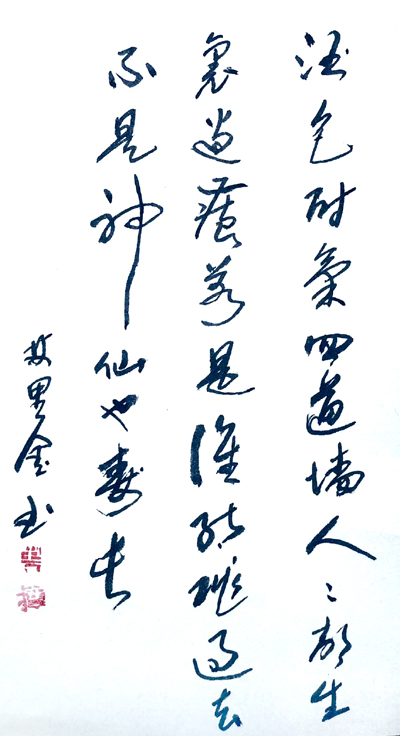 酒色财氣四道墙人々都生
裏边藏若是谁能跳过去
不是神仙也寿长
金书